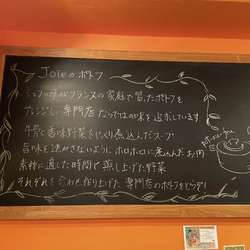 Joieのポトフ
シェフの母がフランスの家庭で習ったポトフを
アレンジし、専門店ならではの味を追求しています
牛骨と香味野菜をじっくり煮込んだスープ
旨味を逃がさないように ホロホロに煮込んだお肉
素材に適した時間で蒸し上げた野菜
それぞれを合わせ作り上げた 専門店のポトフをどうぞ!